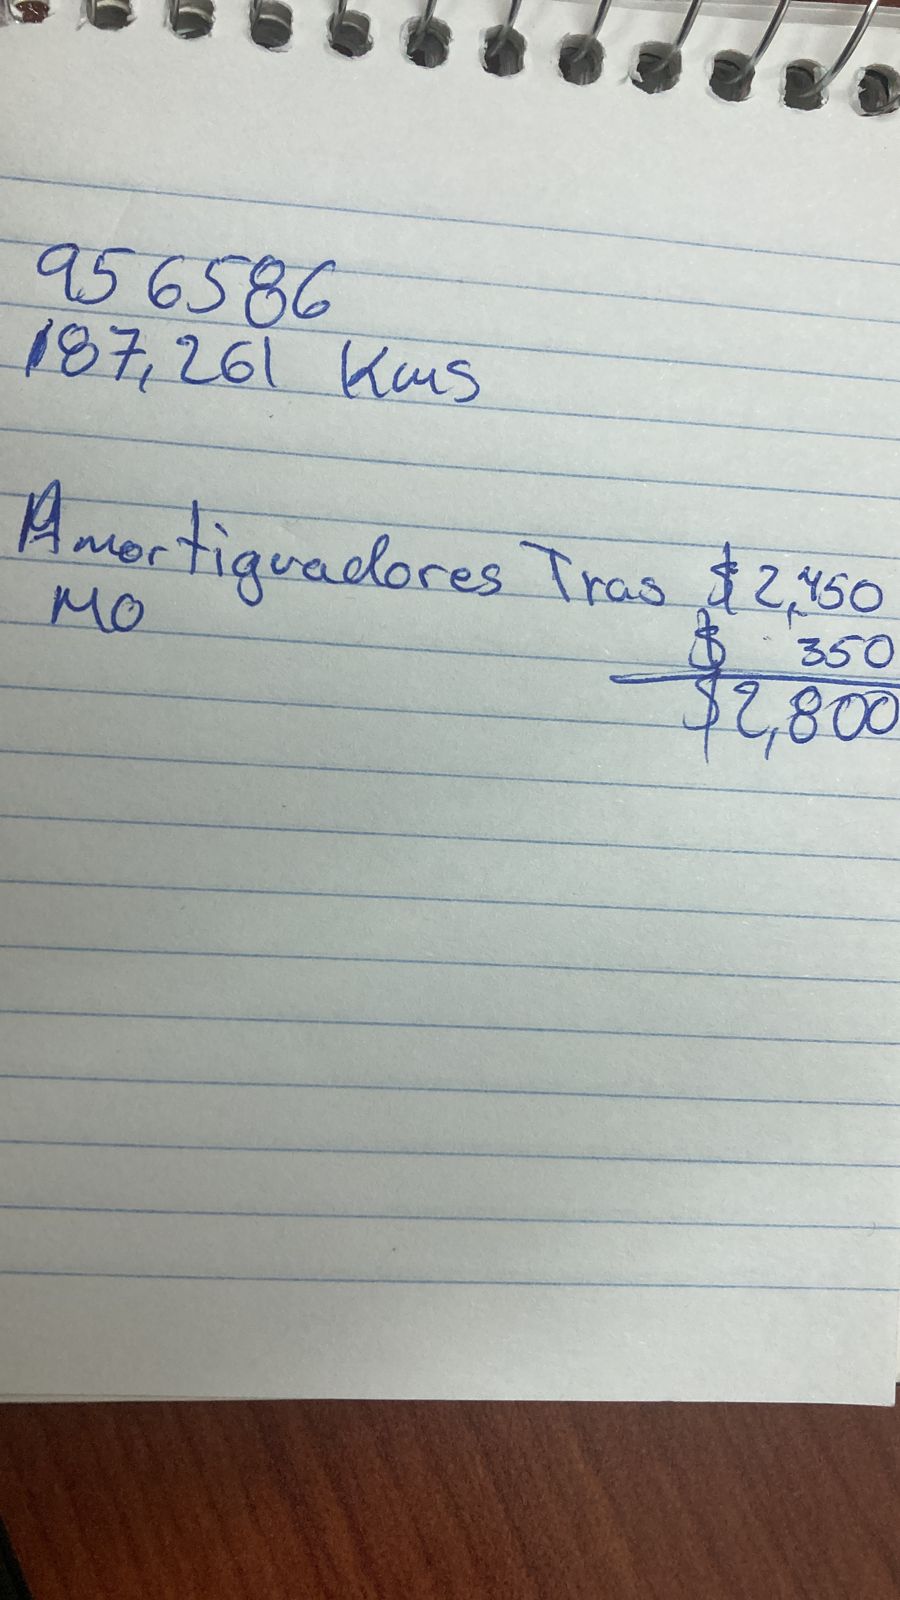 956586
187,261 Kms
Amortiguadores Tras $2,450
MO $ 350
$2,800